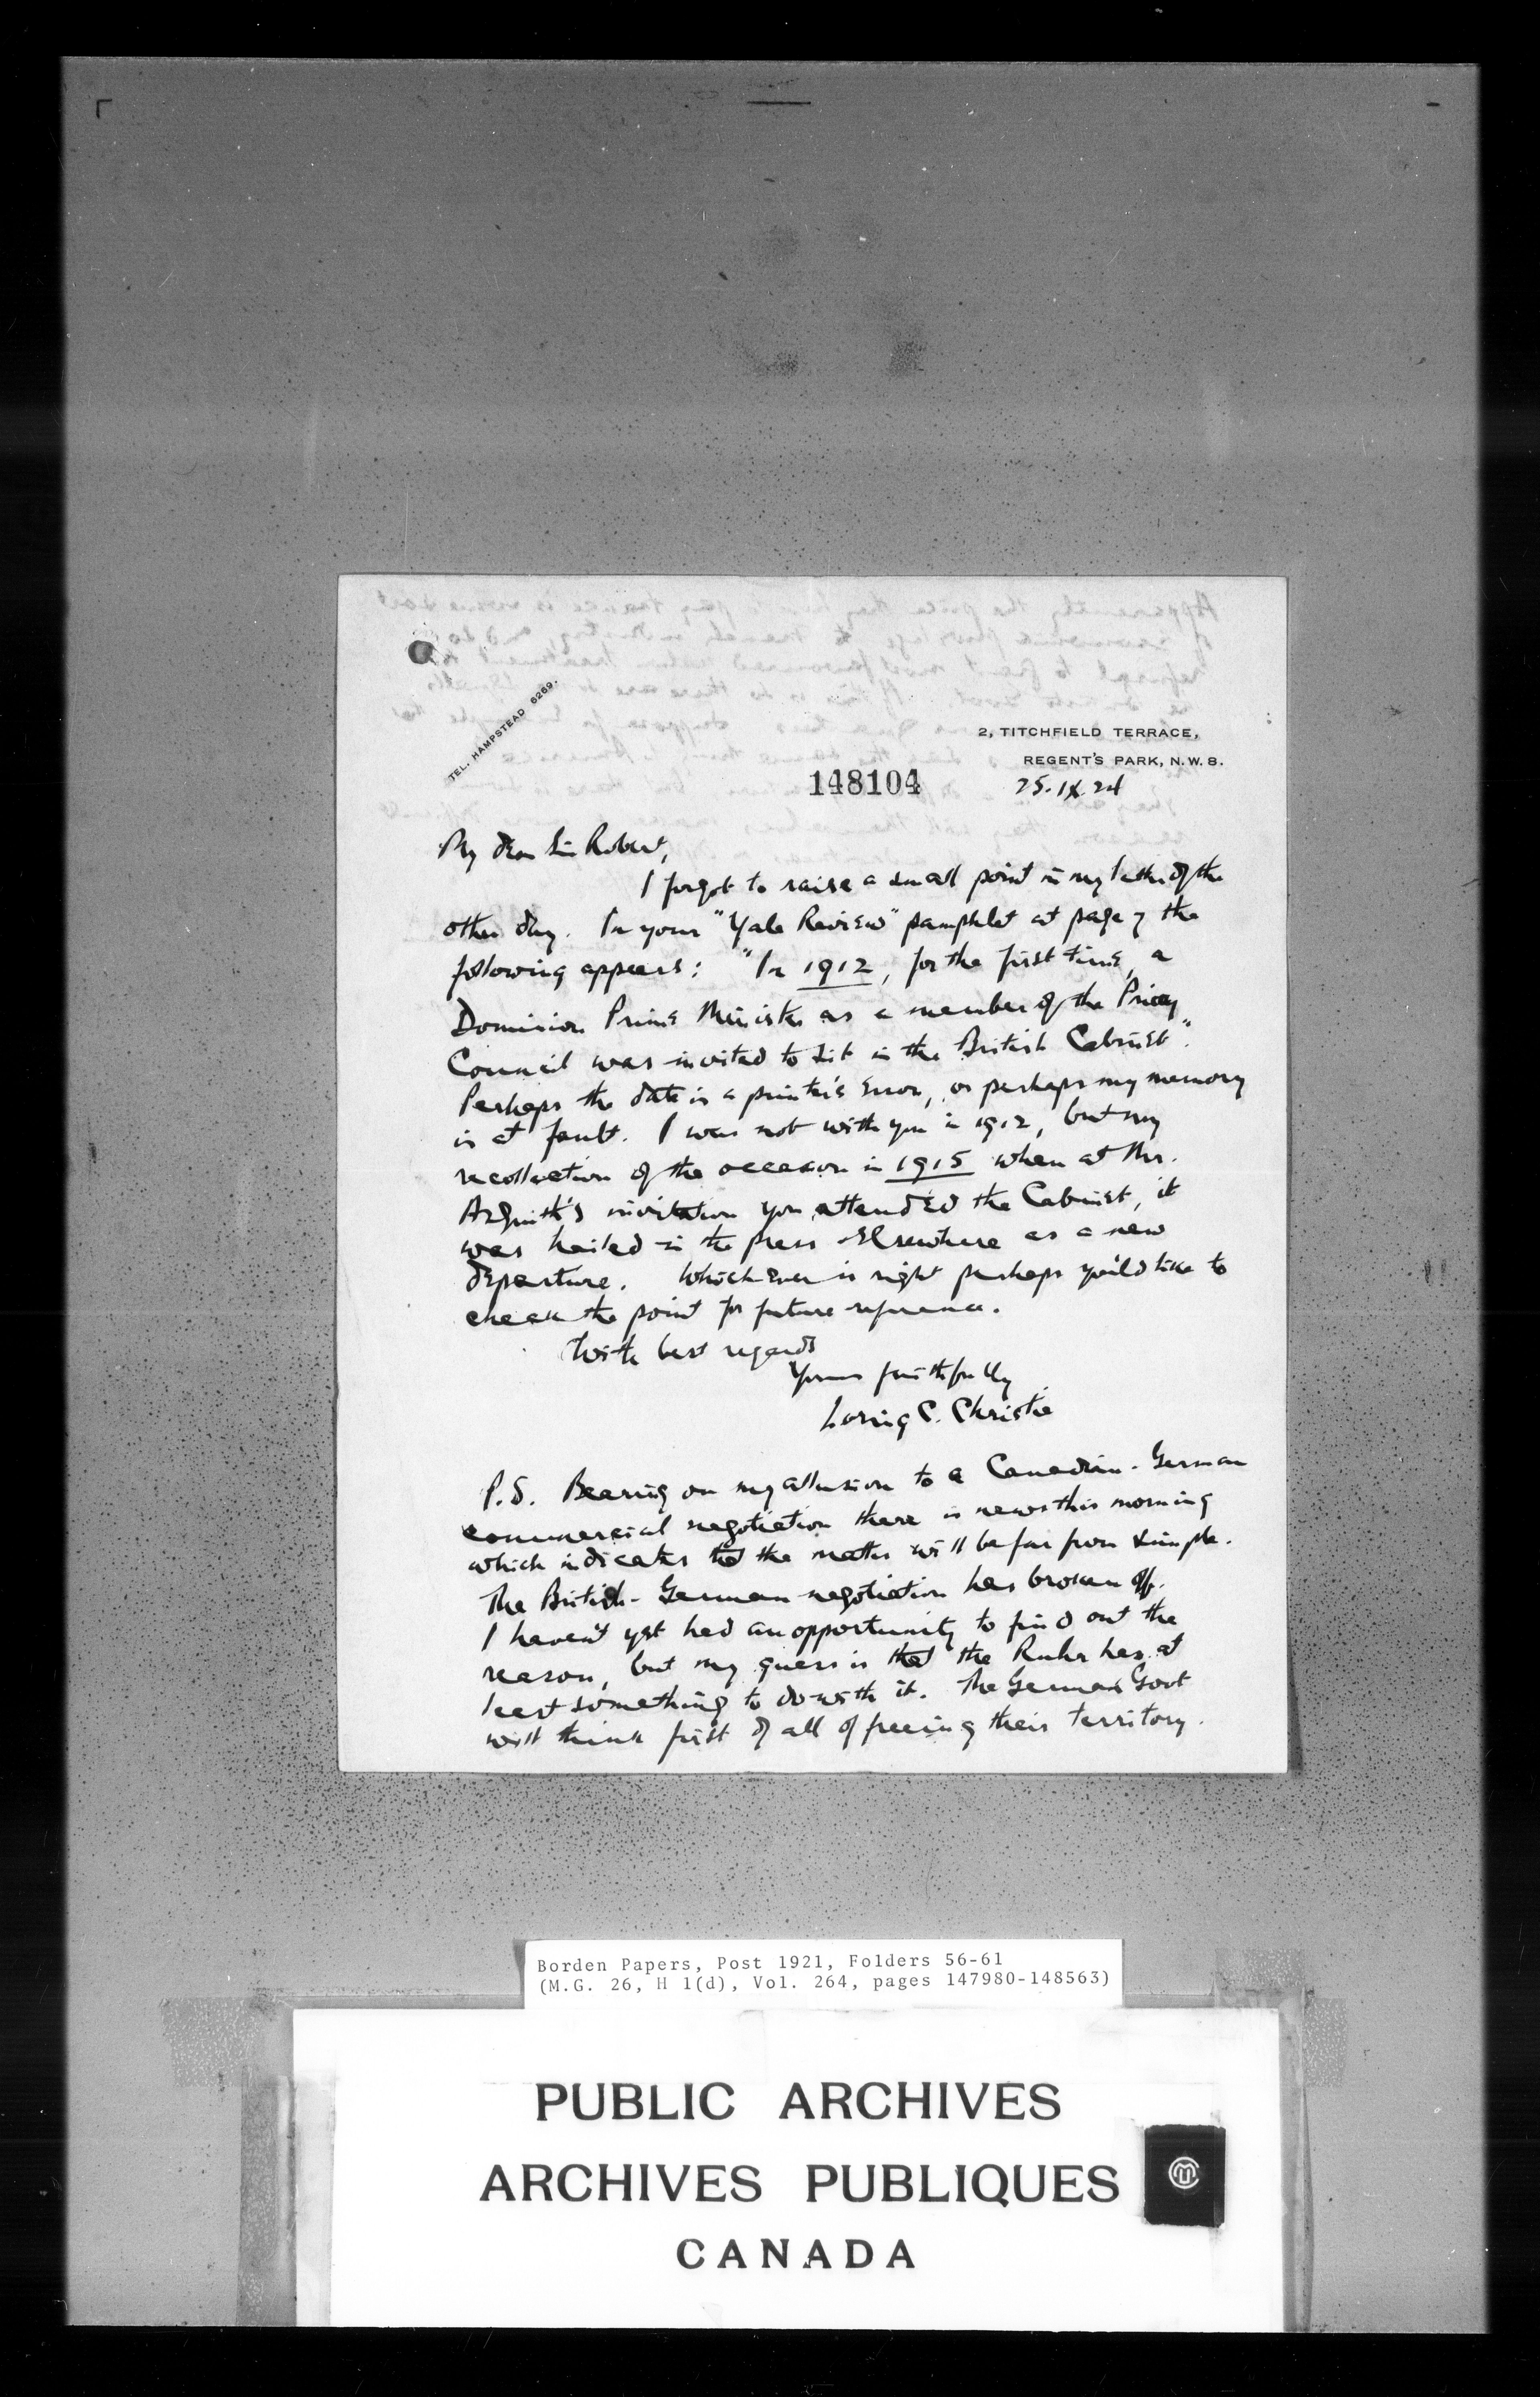 TEL. HAMPSTEAD 6269.
2, TITCHFIELD TERRACE,
REGENT'S PARK, N.W. 8.
148104
25.IX.24
My dear Sir Robert,
I forgot to raise a small point in my letter of the
other day. In your "Yale Review" pamphlet at page 7 the
following appears: "In 1912, for the first time, a
Dominion Prime Minister as a member of the Privy
Council was invited to sit in the British Cabinet".
Perhaps the date is a printer's error, or perhaps my memory
is at fault. I was not with you in 1912, but my
recollection of the occasion in 1915 when at Mr.
Asquith's invitation you attended the Cabinet, it
was hailed in the press & elsewhere as a new
departure. Whichever is right perhaps you'd like to
check the point for future reference.
With best regards
Yours faithfully
Loring C. Christie
P.S. Bearing on my allusion to a Canadian-German
commercial negotiation there is news this morning
which indicates that the matter will be far from simple.
The British-German negotiation has broken off.
I haven't yet had an opportunity to find out the
reason, but my guess is that the Ruhr has at
least something to do with it. The German Govt
will think first of all of freeing their territory.
Borden Papers, Post 1921, Folders 56-61
(M.G. 26, H 1(d), Vol. 264, pages 147980-148563)
PUBLIC ARCHIVES
ARCHIVES PUBLIQUES
CANADA